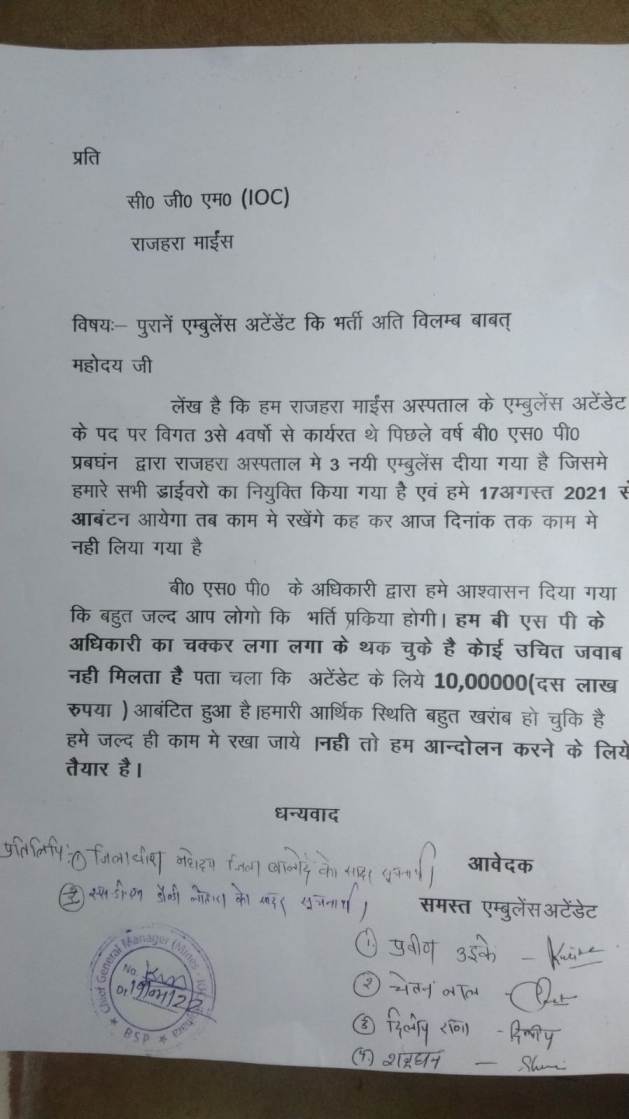 प्रति
सी0 जी0 एम0 (IOC)
राजहरा माईंस
विषयः– पुरानें एम्बुलेंस अटेंडेंट कि भर्ती अति विलम्ब बाबत्
महोदय जी
लेंख है कि हम राजहरा माईंस अस्पताल के एम्बुलेंस अटेंडेट
के पद पर विगत 3से 4वर्षो से कार्यरत थे पिछले वर्ष बी0 एस0 पी0
प्रबघंन द्वारा राजहरा अस्पताल मे 3 नयी एम्बुलेंस दीया गया है जिसमे
हमारे सभी ड्राईवरो का नियुक्ति किया गया है एवं हमे 17अगस्त 2021 से
आबंटन आयेगा तब काम मे रखेंगे कह कर आज दिनांक तक काम मे
नही लिया गया है
बी0 एस0 पी0 के अधिकारी द्वारा हमे आश्वासन दिया गया
कि बहुत जल्द आप लोगो कि भर्ति प्रकिया होगी। हम बी एस पी के
अधिकारी का चक्कर लगा लगा के थक चुके है कोई उचित जवाब
नही मिलता है पता चला कि अटेंडेट के लिये 10,00000(दस लाख
रुपया ) आबंटित हुआ है।हमारी आर्थिक स्थिति बहुत खरांब हो चुकि है
हमे जल्द ही काम मे रखा जाये ।नही तो हम आन्दोलन करने के लिये
तैयार है।
धन्यवाद
प्रतिलिपि :① जिलाधीश महोदय जिला को सादर सूचनार्थ
② को सादर सूचनार्थ
आवेदक
समस्त एम्बुलेंस अटेंडेट
① प्रवीण उइके –
② चेतन लाल –
③ दिलीप राना - दिलीप
④ शत्रुघन –
Chief General Manager (Mines
No.
Dt 19/04/22
BSP